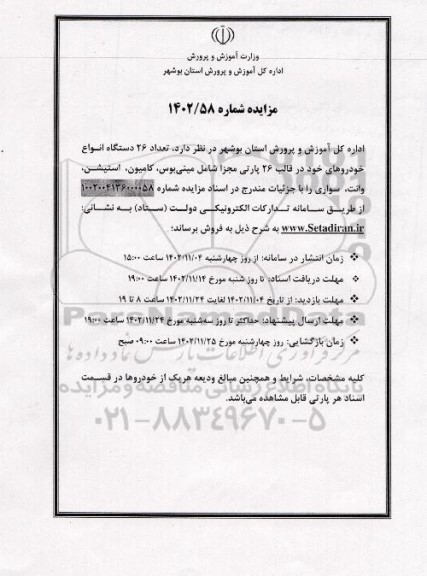 وزارت آموزش و پرورش
اداره کل آموزش و پرورش استان بوشهر
مزایده شماره ۱۴۰۲/۵۸
اداره کل آموزش و پرورش استان بوشهر در نظر دارد، تعداد ۲۶ دستگاه انواع
خودروهای خود در قالب ۲۶ پارتی مجزا شامل مینی‌بوس، کامیون، استیشن،
وانت، سواری را با جزئیات مندرج در اسناد مزایده شماره ۱۰۰۲۰۰۴۱۳۶۰۰۰۰۵۸
از طریق سامانه تدارکات الکترونیکی دولت (ستاد) به نشانی؛
www.Setadiran.ir به شرح ذیل به فروش برساند؛
❖ زمان انتشار در سامانه؛ از روز چهارشنبه ۱۴۰۲/۱۱/۰۴ ساعت ۱۵:۰۰
❖ مهلت دریافت اسناد؛ تا روز شنبه مورخ ۱۴۰۲/۱۱/۱۴ ساعت ۱۹:۰۰
❖ مهلت بازدید؛ از تاریخ ۱۴۰۲/۱۱/۰۴ لغایت ۱۴۰۲/۱۱/۲۴ ساعت ۸ تا ۱۹
❖ مهلت ارسال پیشنهاد؛ حداکثر تا روز سه‌شنبه مورخ ۱۴۰۲/۱۱/۲۴ ساعت ۱۹:۰۰
❖ زمان بازگشایی: روز چهارشنبه مورخ ۱۴۰۲/۱۱/۲۵ ساعت ۰۹:۰۰ صبح
مرکز فرآوری اطلاعات پارس نماد داده ها
کلیه مشخصات، شرایط و همچنین مبالغ ودیعه هریک از خودروها در قسمت
پایگاه اطلاع رسانی مناقصه و مزایده
اسناد هر پارتی قابل مشاهده می‌باشد.
۰۲۱-۸۸۳۴۹۶۷۰-۵